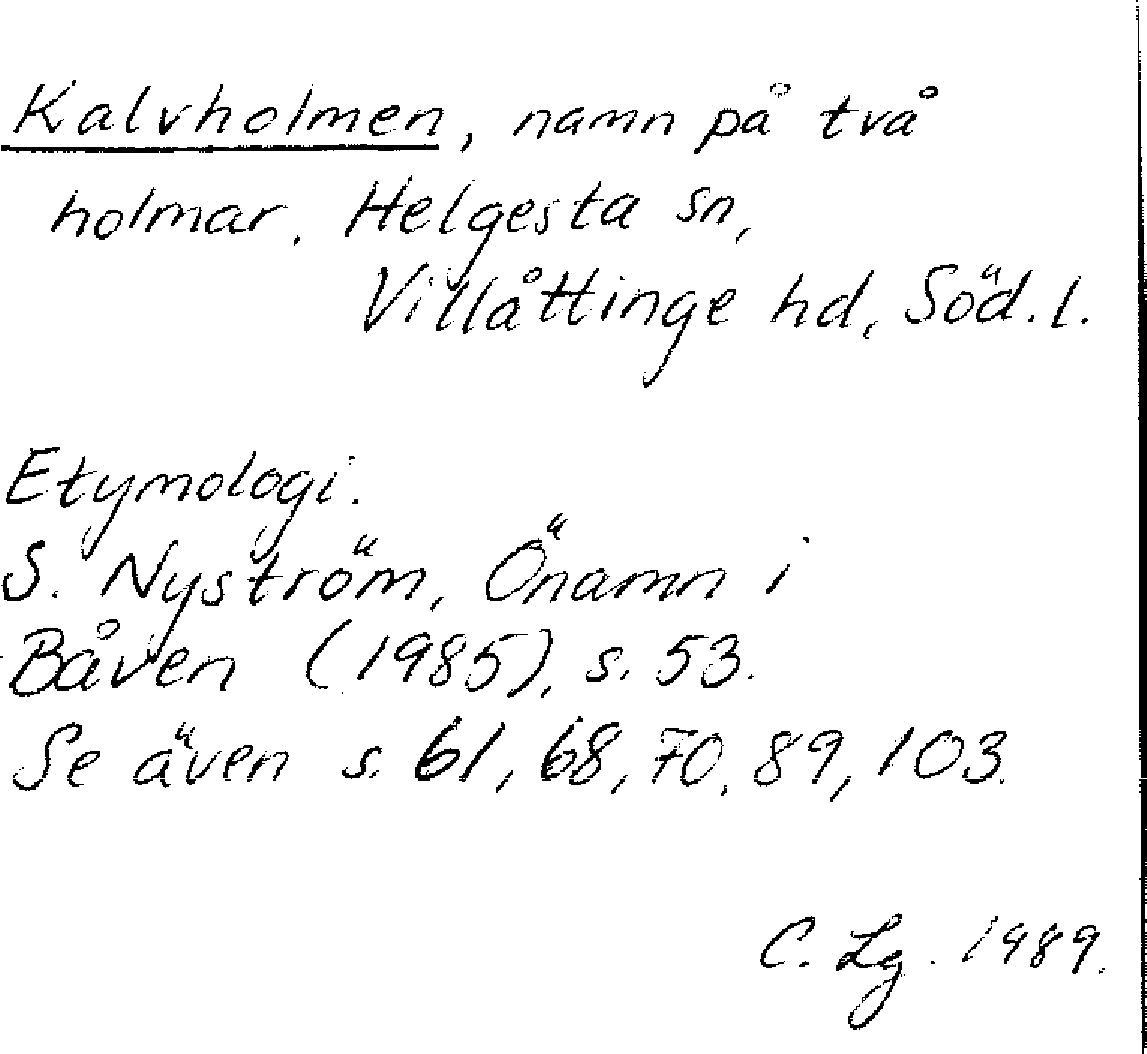 Kalvholmen, namn på två
holmar. Helgesta sn,
Villåttinge hd, Söd. l.
Etymologi.
S. Nyström, Önamn i
Båven (1985), s. 53.
Se även s. 61, 68, 70, 89, 103.
C. Lg. 1989.